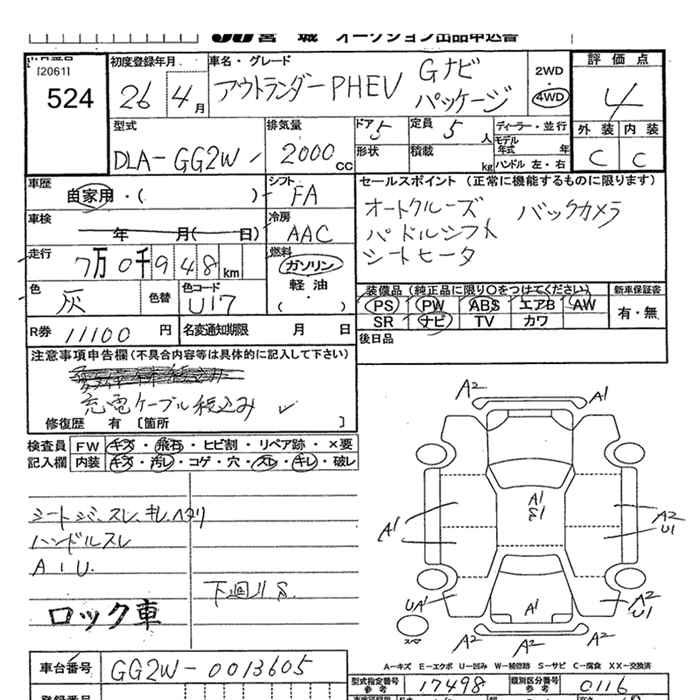 宮 城 オークション出品申込書
[2061]
524
初度登録年月 車名・グレード
26 4月 アウトランダーPHEV Gナビ パッケージ
2WD
4WD
評価点
4
外装 内装
C C
型式 排気量 ドア 5 定員 5人 ディーラー・並行
DLA-GG2W 2000CC 形状 積載 kg モデル年式 年
ハンドル左・右
車歴 自家用・( ) シフト FA
セールスポイント (正常に機能するものに限ります)
オートクルーズ バックカメラ
パドルシフト
シートヒータ
車検 年 月( 日) 冷房 AAC
走行 7万0千948km 燃料 ガソリン
軽油
・( )
色 灰 色替 色コード U17
装備品(純正品に限り○をつけてください) 新車保証書
PS PW ABS エアB AW 有・無
SR ナビ TV カワ
R券 11100円 名変通知期限 月 日
後日品
注意事項申告欄(不具合内容等は具体的に記入して下さい)
充電ケーブル積込み ✓
修復歴 有 [箇所 ]
検査員 FW キズ・飛石・ヒビ割・リペア跡・×要
記入欄 内装 キズ・汚レ・コゲ・穴・スレ・キレ・破レ
シートシワ、スレ、キレ、ヘタリ
ハンドルスレ
A I U.
下廻りS.
ロック車
A2 A1
A1
S1
A1
A2
U1
UA1
A1
A2
U1
スマ
A2 A2 A2
A-キズ E-エクボ U-凹み W-補修跡 S-サビ C-腐食 XX-交換済
車台番号 GG2W-0013605
型式指定番号 参考 17498 類別区分番号 参考 0116
登録番号